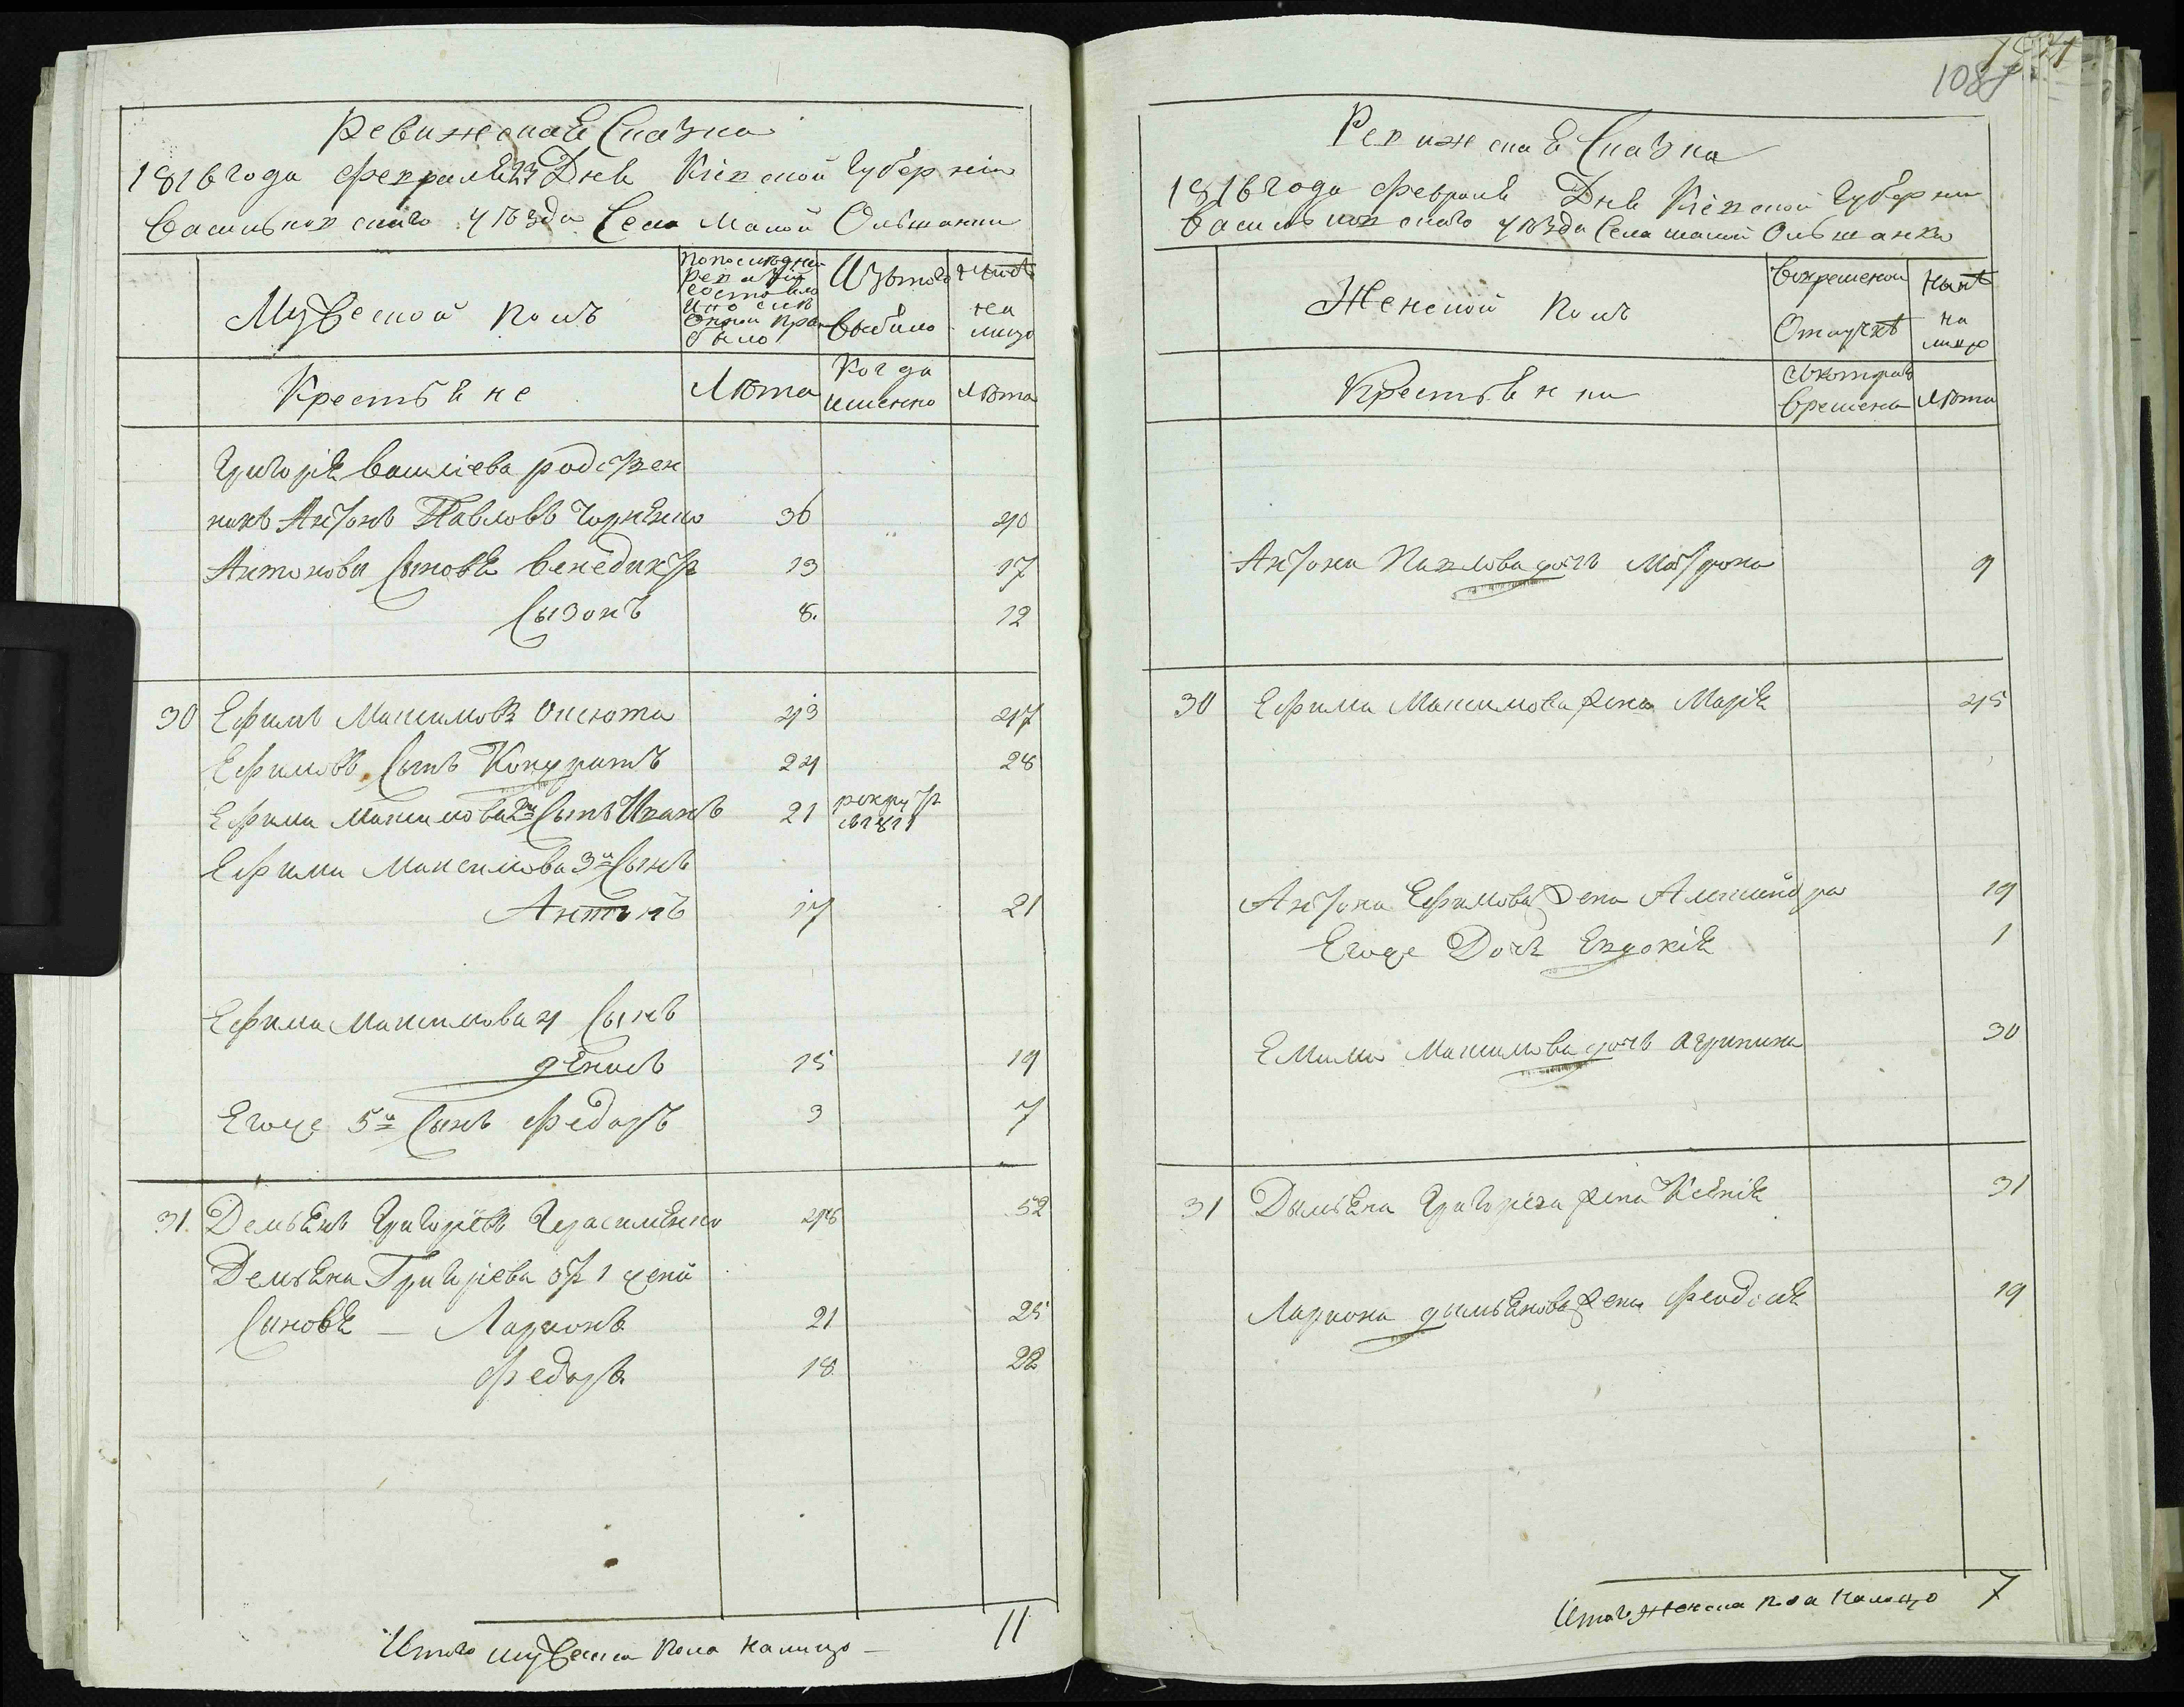 Ревижская Сказка
1816 года Февраля 23 Дня Кіевской Губерніи
Васильковского уѣзда Села Малой Ольшанки
Мужеской полъ
По последней ревизіи состояло и после оной прибыло
Изъ того выбыло
Нынѣ на лицо
Крестьяне
Лѣта
Когда именно
Лѣта
Григорія Василіева родствен
никъ Антонъ Павловъ Чорненко 36 40
Антонови Сыновя Венедиктъ 13 17
Сызонъ 8. 12
30 Ефимъ Максимовъ Оксюта 43 47
Ефимовъ Сынъ Кондратъ 24 28
Ефима Максимова 2й Сынъ Иванъ 21 рекрутъ въ 1811
Ефима Максимова 3й Сынъ
Антонъ 17 21
Ефима Максимова 4 Сынъ
Денисъ 15 19
Егоже 5й Сынъ Федоръ 3 7
31. Демьянъ Григоріевъ Герасименко 48 52
Демьяна Григоріева отъ 1 жены
Сыновя — Ларионъ 21 25
Федоръ 18 22
Итого мужеска пола налицо — 11
1087
Ревижская Сказка
1816 года Февраля Дня Кіевской Губернии
Васильковского уѣзда Села малой Ольшанки
Женской полъ
Вовременой Отлучкѣ
Нынѣ на лицо
Крестьянки
Съ котораго времени
Лѣта
Антона Павлова дочь Мотрона 9
30 Ефима Максимова жена Марія 45
Антона Ефимова жена Александра 19
Егоже Дочь Евдокія 1
Ефима Максимова дочь Агрипина 30
31 Дымьяна Григорева жена Ксенія 31
Лариона дымьянова жена Феодосія 19
Итого женска пола налицо 7